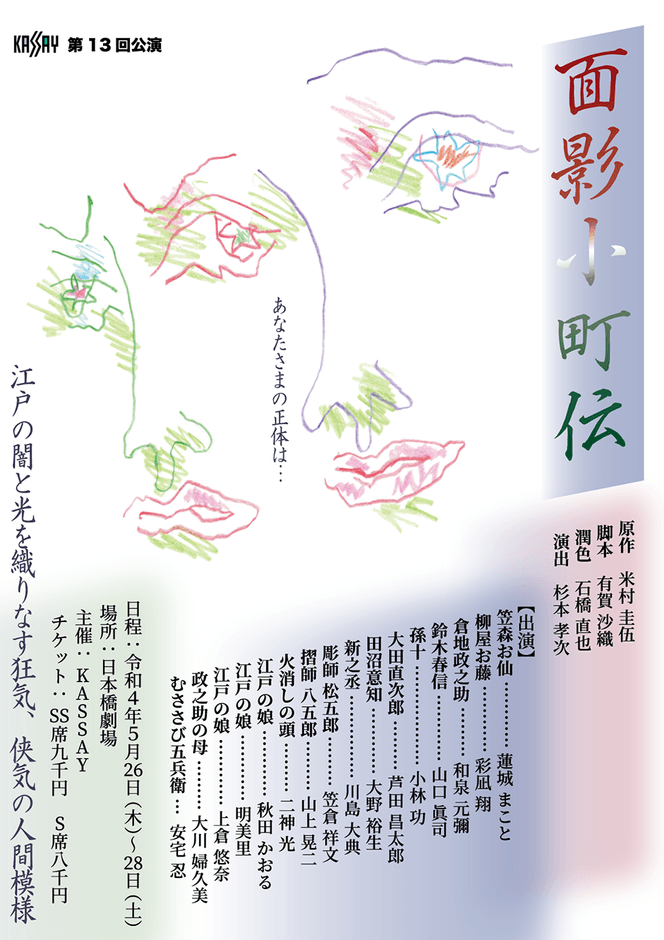 KASSAY 第13回公演
面影小町伝
あなたさまの正体は…
原作 米村 圭伍
脚本 有賀 沙織
潤色 石橋 直也
演出 杉本 孝次
【出演】
笠森お仙…………蓮城 まこと
柳屋お藤…………彩凪 翔
倉地政之助………和泉 元彌
鈴木春信…………山口 眞司
孫十………………小林 功
大田直次郎………芦田 昌太郎
田沼意知…………大野 裕生
新之丞……………川島 大典
彫師 松五郎………笠倉 祥文
摺師 八五郎………山上 晃二
火消しの頭………二神 光
江戸の娘…………秋田 かおる
江戸の娘…………明美里
江戸の娘…………上倉 悠奈
政之助の母………大川 婦久美
むささび五兵衛… 安宅 忍
日程：令和4年5月26日（木）〜28日（土）
場所：日本橋劇場
主催：KASSAY
チケット：SS席九千円 S席八千円
江戸の闇と光を織りなす狂気、侠気の人間模様